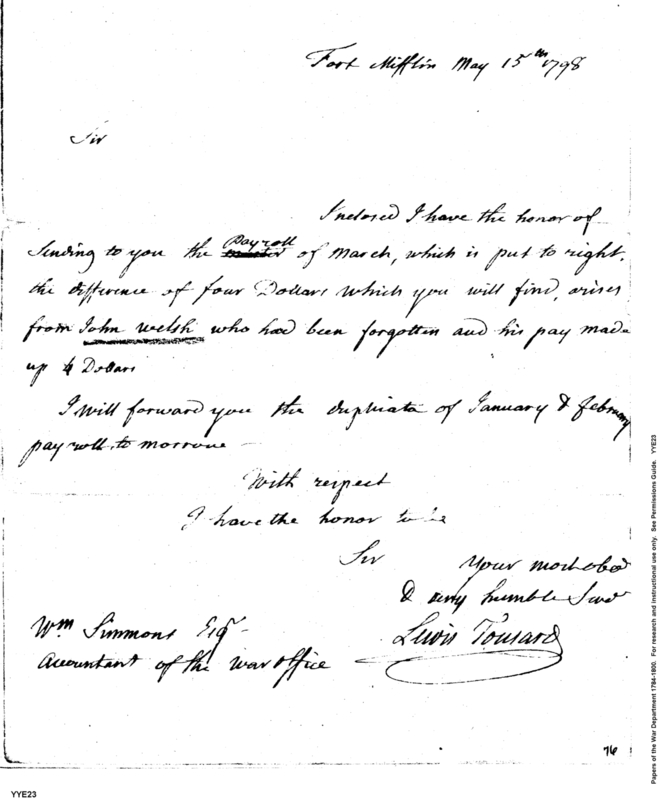 Fort Mifflin May 15th 1798
Sir
Inclosed I have the honor of
sending to you the Payroll of March, which is put to right.
the difference of four Dollars which you will find, arises
from John Welsh who had been forgotten and his pay made
up 4 Dollars
I will forward you the duplicata of January & february
pay roll to morrow
With respect
I have the honor to be
Sir Your most obed
& very humble Servt
Wm Simmons Esqr Lewis Tousard
Accountant of the War Office
76
YYE23
Papers of the War Department 1784-1800. For research and instructional use only. See Permissions Guide. YYE23